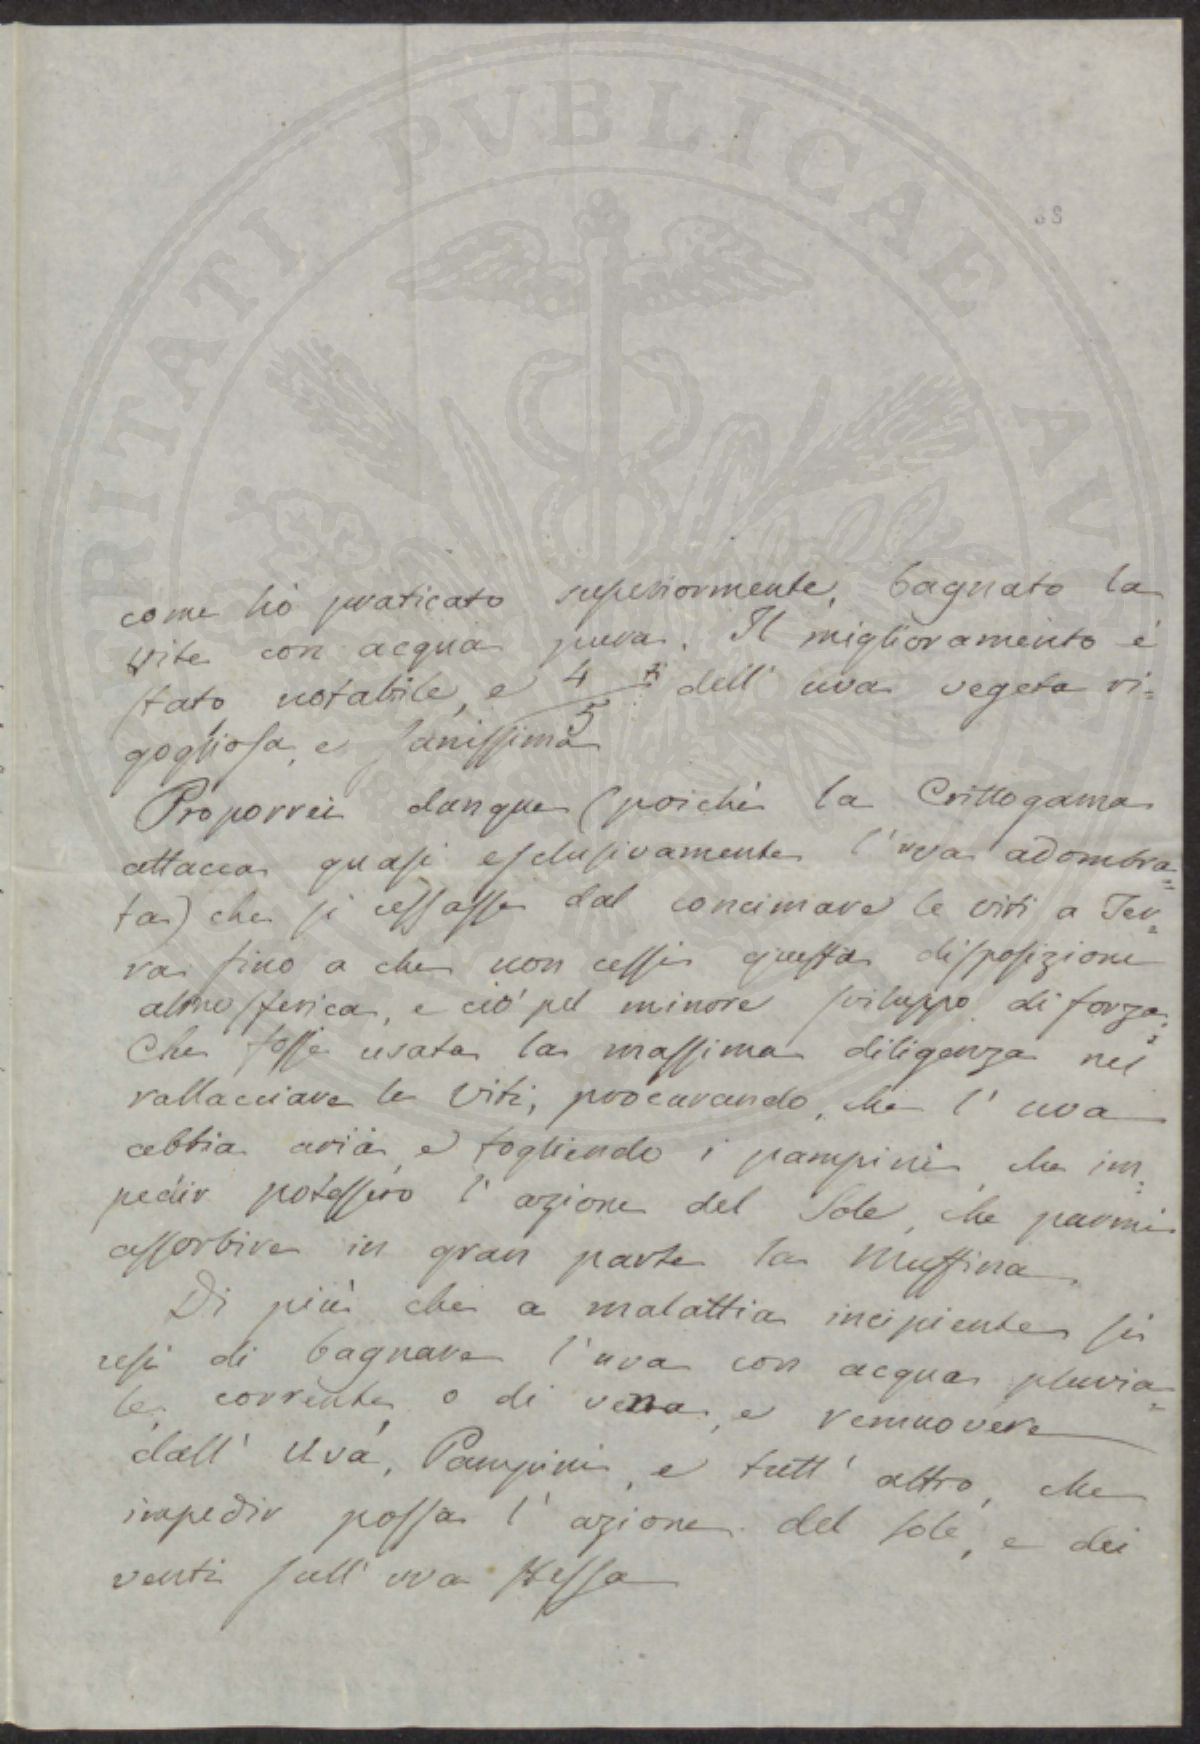 PVBLICAE
RITATI
AV
come hò praticato superiormente, bagnato la
vite con acqua pura. Il miglioramento è
stato notabile, e 4/5 ti dell' uva vegeta ri=
gogliosa, e sanissima
Proporrei dunque (poichè la Crittogama
attacca quasi esclusivamente l'uva adombra=
ta) che si cessasse dal concimare le viti a Ter=
ra fino a che non cessi questa disposizione
atmosferica, e ciò pel minore sviluppo di forza.
Che fosse usata la massima diligenza nel
rallacciare le Viti, procurando, che l' uva
abbia aria, e togliendo i pampini che im=
pedir potessero l' azione del Sole, che parmi
assorbire in gran parte la Muffina.
Di più che a malattia incipiente si
usi di bagnare l'uva con acqua pluvia=
le, corrente, o di vena, e remuovere
dall' Uva, Pampini, e tutt' altro, che
impedir possa l' azione del sole, e dei
venti sull' uva stessa